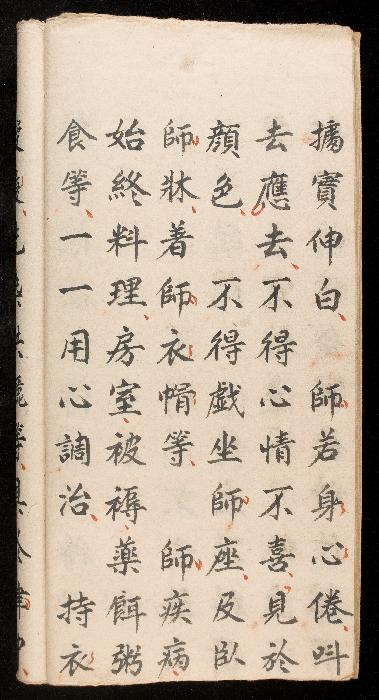 攄實伸白　師若身心倦呌
去應去不得心情不喜見於
顔色　不得戲坐師座及臥
師牀着師衣帽等　師疾病
始終料理房室被褥藥餌粥
食等一一用心調治　持衣